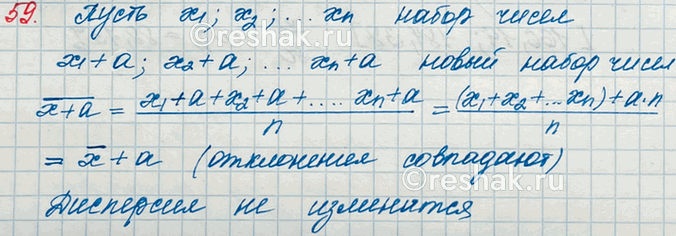 59. Пусть x₁; x₂; ... xₙ набор чисел
x₁+a; x₂+a; ... xₙ+a новый набор чисел
\overline{x+a} = \frac{x₁+a+x₂+a+.... xₙ+a}{n} = \frac{(x₁+x₂+...xₙ)+a·n}{n}
= \overline{x} + a (отклонения совпадают)
Дисперсия не изменится
reshak.ru
reshak.ru